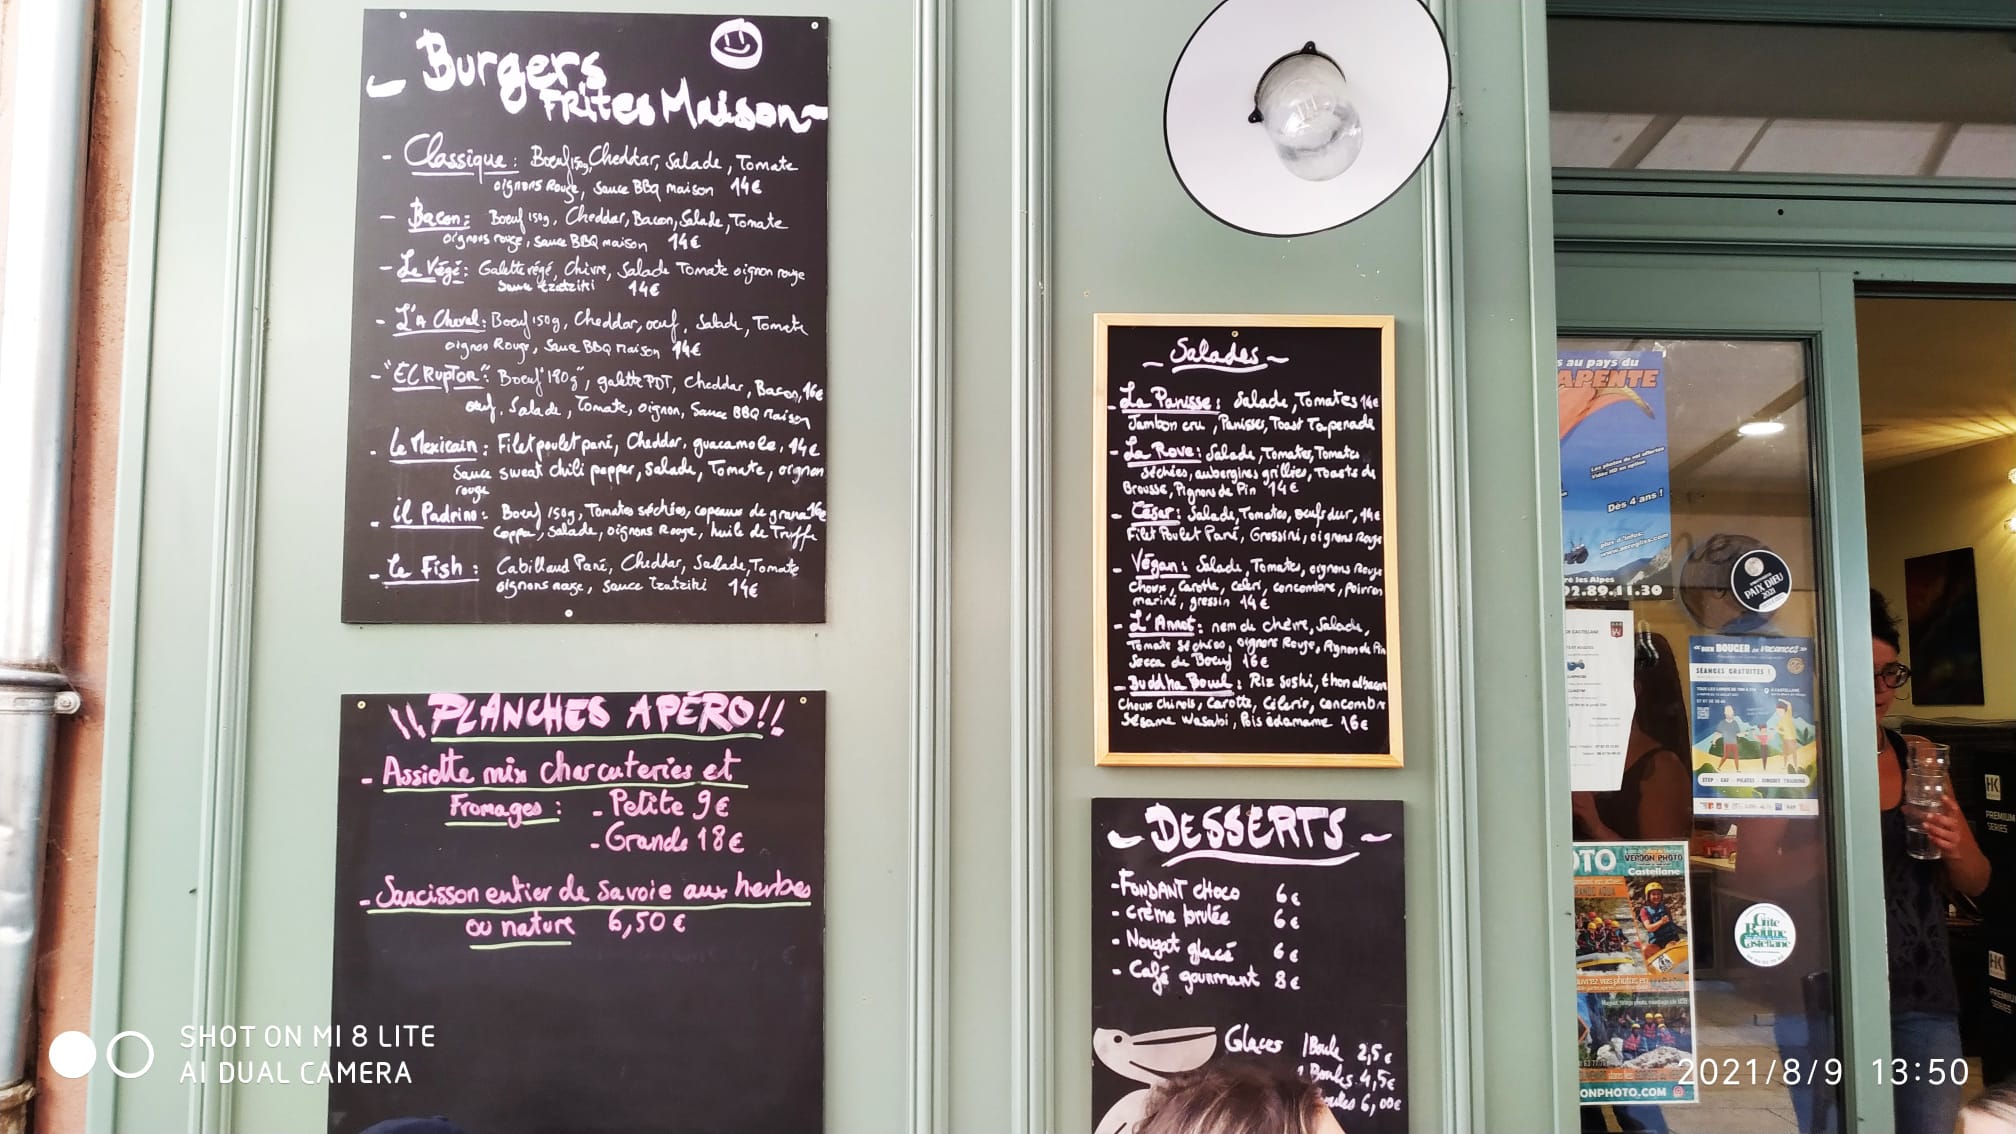 Burgers
Frites Maison
- Classique : Boeuf 150g, Cheddar, Salade, Tomate
oignons Rouge, Sauce BBQ maison 14€
- Bacon : Boeuf 150g, Cheddar, Bacon, Salade, Tomate
oignons rouge, Sauce BBQ maison 14€
- Le Végé : Galette végé, Chèvre, Salade Tomate oignon rouge
Sauce tzatziki 14€
- L'A Cheval : Boeuf 150g, Cheddar, oeuf, Salade, Tomate
oignon Rouge, Sauce BBQ maison 14€
- "EL RupTOR" : Boeuf "180g", galette PDT, Cheddar, Bacon, 16€
oeuf, Salade, Tomate, oignon, Sauce BBQ Maison
- Le Mexicain : Filet poulet pané, Cheddar, guacamole, 14€
Sauce sweat chili pepper, Salade, Tomate, oignon
rouge
- il Padrino : Boeuf 150g, Tomates séchées, copeaux de grana 16€
Coppa, Salade, oignons Rouge, huile de Truffe
- Le Fish : Cabillaud Pané, Cheddar, Salade, Tomate
oignons rouge, Sauce tzatziki 14€
\\ PLANCHES APÉRO!!
- Assiette mix charcuteries et
Fromages : - Petite 9€
- Grande 18€
- Saucisson entier de Savoie aux herbes
ou nature 6,50€
~ Salades ~
- La Panisse : Salade, Tomates 14€
Jambon cru, Panisses, Toast Tapenade
- La Rove : Salade, Tomates, Tomates
séchées, aubergines grillées, Toasts de
Brousse, Pignons de Pin 14€
- César : Salade, Tomates, oeufs dur, 14€
Filet Poulet Pané, Gressini, oignons Rouge
- Végan : Salade, Tomates, oignons Rouge
Choux, Carotte, Céleri, concombre, Poivron
mariné, gressin 14€
- L'Annot : nem de chèvre, Salade,
Tomate séchées, oignons Rouge, Pignon de Pin
Secca de Boeuf 16€
- Buddha Bowl : Riz Sushi, thon albacore
Choux chinois, Carotte, Célerie, concombre
Sésame Wasabi, Pois édamame 16€
~ DESSERTS ~
- FONDANT CHOCO 6€
- Crème brulée 6€
- Nougat glacé 6€
- Café gourmant 8€
Glaces 1 Boule 2,5€
Boules 4,5€
6,00€
s au pays du
APENTE
Les photos du vol offertes
Vidéo HD en option
Dès 4 ans !
plus d'infos:
www.aerogliss.com
ré les Alpes
02.89.11.30
PAIX DIEU
2021
DE CASTELLANE
«BIEN BOUGER en vacances»
SÉANCES GRATUITES !
STEP - CAF - PILATES - CIRCUIT TRAINING
OTO VERDON PHOTO
Castellane
ONPHOTO.COM
Gîte
Baume
Castellane
HK
PREMIUM
SERIES
HK
PREMIUM
SERIES
SHOT ON MI 8 LITE
AI DUAL CAMERA
2021/8/9 13:50